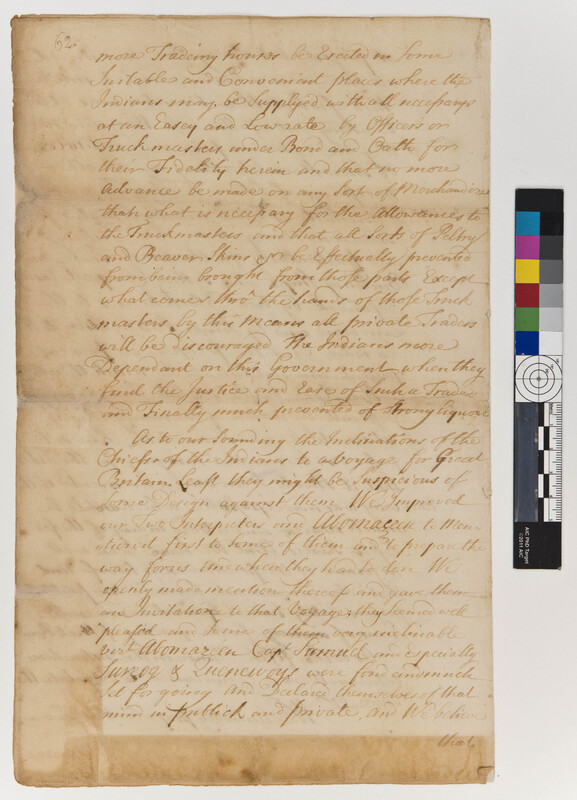 62
more Trading houses be Erected in Some
Suitable and Convenient places where the
Indians may be Supplyed with all necessarys
at an Easey and Low rate by Officers or
Truckmasters under Bond and Oath for
their Fidelity herein and that no more
Advance be made on any Sort of Merchandize
than what is necessary for the Allowances to
the Truckmasters and that all Sorts of Peltry
and Beaver Skins &c be Effectually prevented
from being brought from those parts Except
what comes thro the hands of those Truck
masters by this Means all private Traders
will be Discouraged The Indians more
Dependant on this Government when they
find the Justice and Ease of Such a Trade
and Finally much prevented of Strong liquors
As to our Sounding the Inclinations of the
Chiefs of the Indians to a Voyage for Great
Britain Least they might be Suspicious of
Some Design against them We Improved
our Two Interpreters and Abomazeen to Men
tioned first to Some of them and to prepare the
way for us and when they had so don We
openly made mention thereof and gave them
an Invitation to that Voyage; they seemed well
pleased and Some of them very inclinable
vizt. Abomazeen Capt Samuel and especially
& Queneways were fond and much
Set for going and Declare themselves of that
mind in publick and private, and We believe
that
AIC PhD Target
©2011 AIC